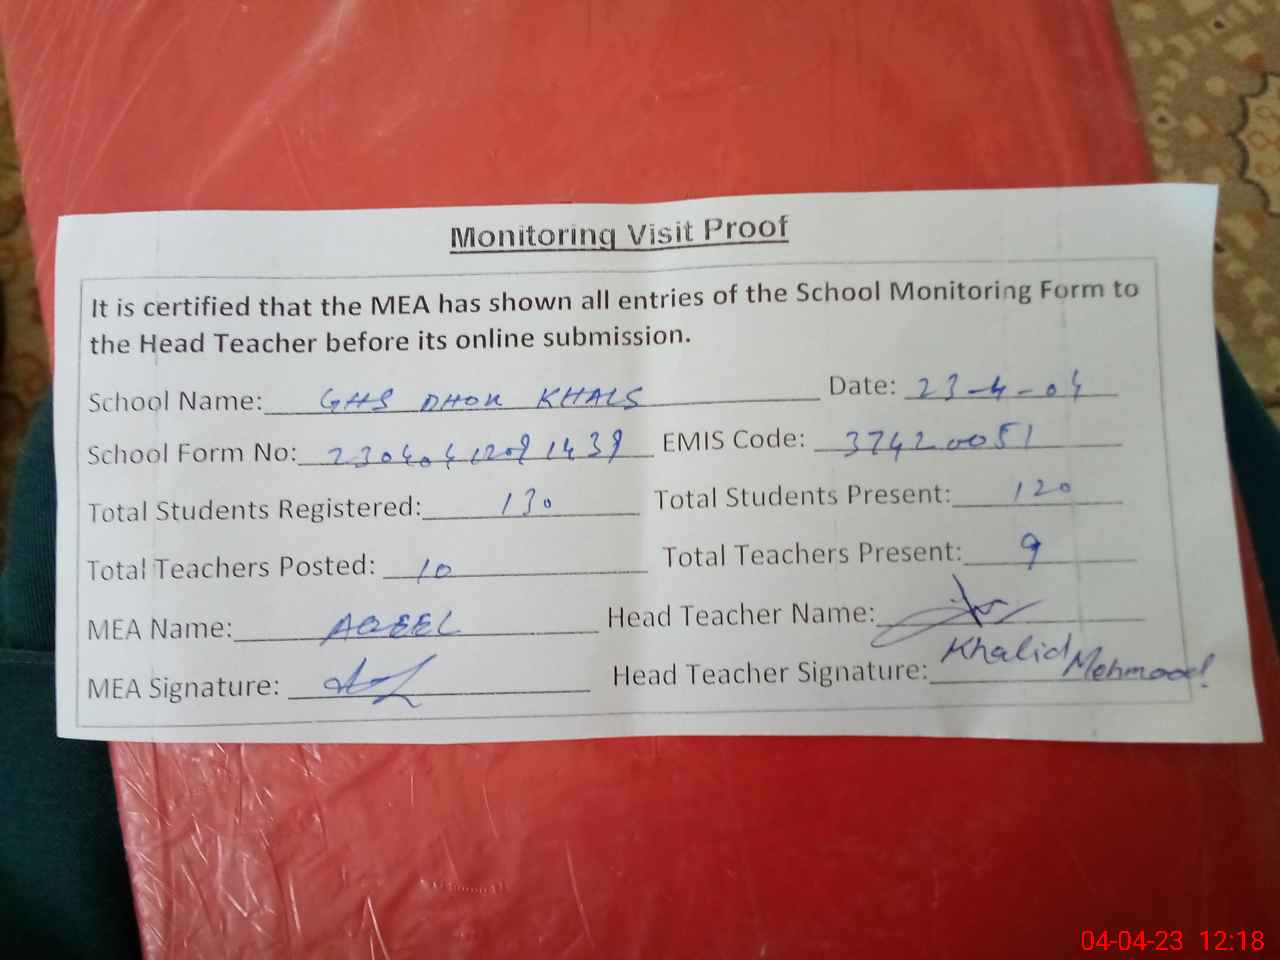 Monitoring Visit Proof
It is certified that the MEA has shown all entries of the School Monitoring Form to
the Head Teacher before its online submission.
School Name: GHS DHOK KHALS Date: 23-4-04
School Form No: 23040412091439 EMIS Code: 37420051
Total Students Registered: 130 Total Students Present: 120
Total Teachers Posted: 10 Total Teachers Present: 9
MEA Name: AQEEL Head Teacher Name:
MEA Signature: Head Teacher Signature: Khalid Mehmood
04-04-23 12:18